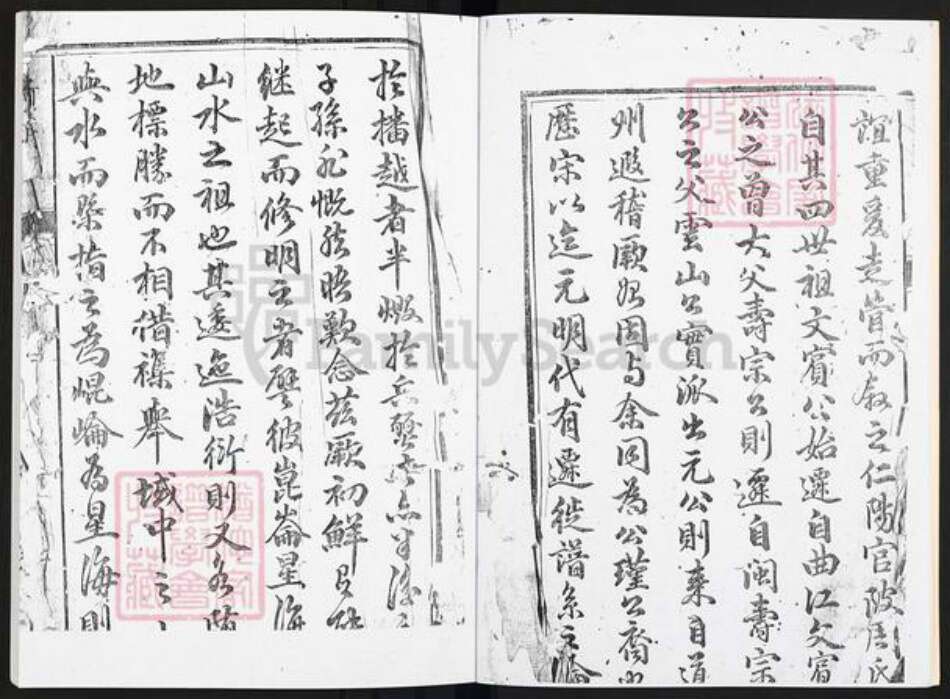 誼重爰走管而敘之仁陽官陂周氏
自其四世祖文賓公始遷自曲江文賓
公之曾大父壽宗公則遷自閩壽宗
公之父雲山公實派出元公則來自道
州遐稽厥始固與余同為公瑾公裔
歷宋以迄元明代有遷徙譜系之淪
於播越者半燬於兵燹者亦半後
子孫慨然嘆念茲厥初鮮有
继起而修明之者譬彼崑崙星海
山水之祖也其逶迤浩衍則又各
地標勝而不相借襍舉域中之
與水而縣指之為崐崘為星海則
FamilySearch